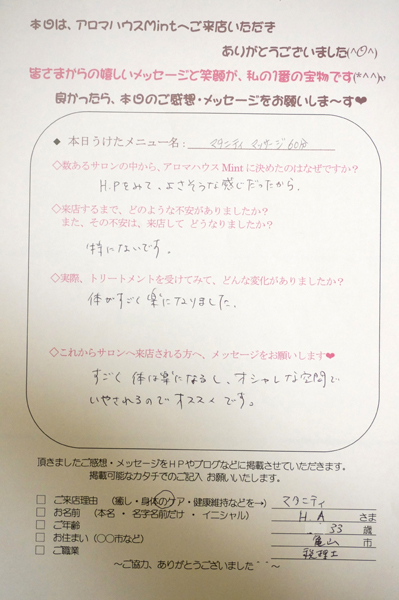 本日は、アロマハウスMintへご来店いただき
ありがとうございました(^O^)
皆さまからの嬉しいメッセージと笑顔が、私の1番の宝物です(*^^)v
良かったら、本日のご感想・メッセージをお願いしま〜す❤
◆ 本日うけたメニュー名： マタニティ マッサージ 60分
◇数あるサロンの中から、アロマハウス Mint に決めたのはなぜですか？
H.Pをみて、よさそうな感じだったから。
◇来店するまで、どのような不安がありましたか？
また、その不安は、来店して どうなりましたか？
特にないです。
◇実際、トリートメントを受けてみて、どんな変化がありましたか？
体がすごく楽になりました。
◇これからサロンへ来店される方へ、メッセージをお願いします❤
すごく 体は楽になるし、オシャレな空間で
いやされるのでオススメです。
頂きましたご感想・メッセージをＨＰやブログなどに掲載させていただきます。
掲載可能なカタチでのご記入 お願いいたします。
□ ご来店理由 （癒し・身体のケア・健康維持などを→） マタニティ
□ お名前 （本名 ・ 名字名前だけ ・ イニシャル） H A さま
□ ご年齢 33 歳
□ お住まい（〇〇市など） 亀山 市
□ ご職業 税理士
〜ご協力、ありがとうございました｀｀〜